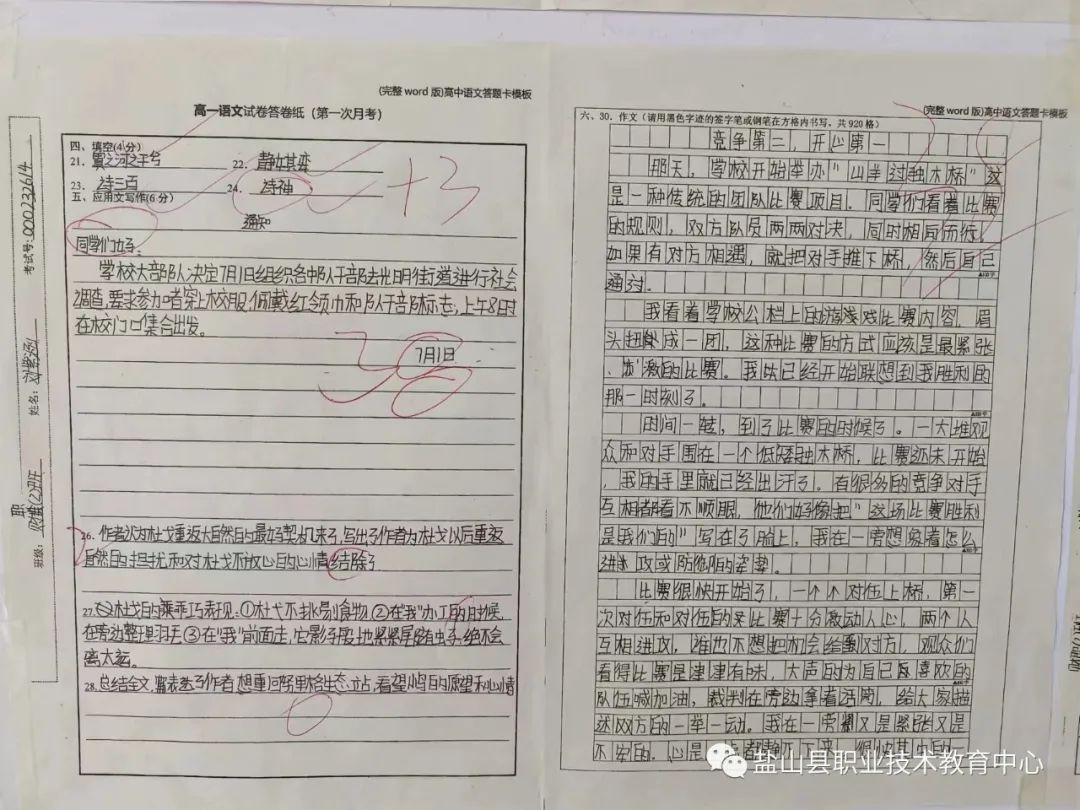 (完整 word 版)高中语文答题卡模板
高一语文试卷答卷纸（第一次月考）
考试号:000232614
姓名:
班级:
四、填空(4分)
21. 寘之河之干兮
22. 静女其娈
23. 诗三百
24. 诗神
+3
五、应用文写作(6分)
通知
同学们好：
学校大部队决定7月1日组织各中队干部去光明街道进行社会
调查,要求参加者穿上校服,佩戴红领巾和队干部标志,上午8时
在校门口集合出发。
7月1日
26. 作者认为杜戈重返大自然的最好契机来了,写出了作者为杜戈以后重返
自然的担扰和对杜戈不放心的心情结除了
27. 杜戈的乘乖巧表现:①杜戈不挑剔食物②在我办工的时候
在旁边整理羽毛③在"我"前面走,它影子般地紧紧尾随虫子,绝不会
离太远。
28. 总结全文,表达了作者想重回努里格生态立占,看望鸟的愿望和心情
(完整 word 版)高中语文答题卡模板
六、30. 作文（请用黑色字迹的签字笔或钢笔在方格内书写，共920格）
竞争第二，开心第一
那天，学校开始举办"山羊过独木桥"这
是一种传统的团队比赛项目。同学们看着比赛
的规则，对方队员两两对决，同时相后而行，
如果有对方相遇，就把对手推下桥，然后自己
通过。
我看着学校公栏上的游戏比赛内容，眉
头扭成一团，这种比赛的方式应该是最紧张
、激的比赛。我已经开始联想到我胜利的
那一时刻了。
时间一转，到了比赛的时候了。一大堆观
众和对手围在一个低矮独木桥，比赛还未开始
，我的手里就已经出汗了。有很多的竞争对手
互相都看不顺眼，他们好像把"这场比赛胜利
是我们的"写在了脸上，我在一旁想象着怎么
进攻或防御的姿势。
比赛很快开始了，一个个对伍上桥，第一
次对伍和对伍的来比赛十分激动人心，两个人
互相进攻，谁也不想把机会给对方，观众们
看得比赛是津津有味，大声的为自己喜欢的
队伍喊加油，裁判在旁边拿着话筒，给大家描
述双方的一举一动。我在一旁又是紧张又是
不安的。心是都静不下来，很快其中的一
盐山县职业技术教育中心